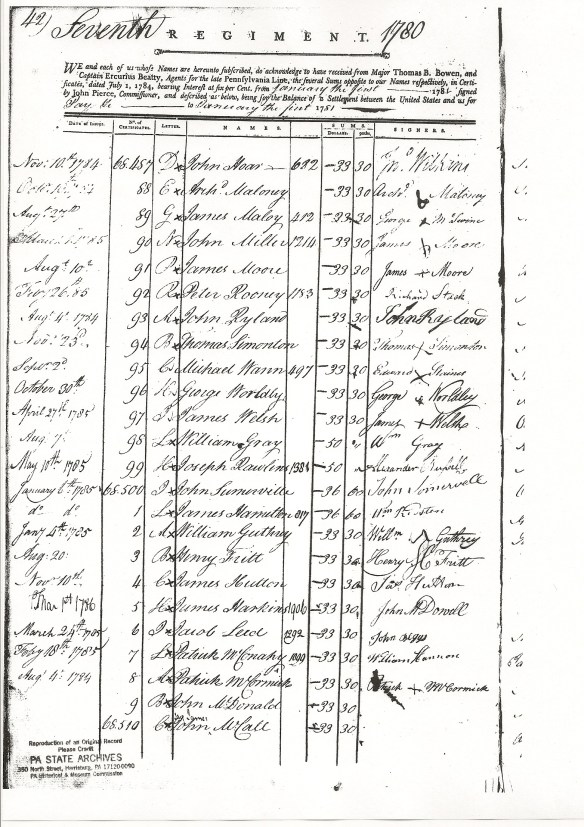 42) Seventh REGIMENT. 1780
WE and each of us whose Names are hereunto subscribed, do acknowledge to have received from Major Thomas B. Bowen, and
Captain Ercurius Beatty, Agents for the late Pennsylvania Line, the several Sums opposite to our Names respectively, in Certi-
ficates, dated July 1, 1784, bearing Interest at six per Cent. from January the first 1781 signed
by John Pierce, Commissioner, and described as below, being for the Balance of a Settlement between the United States and us for
Pay &c to January the first 1781
Date of Issue. No. of Certificates. Letter. NAMES. SUMS. Dollars. 90ths. SIGNERS.
Nov: 10th 1784 68.487 D John Hoar 682 33 30 Jno. Wilkins
88 E Archd. Maloney 33 30 Archd. Maloney
Augt. 27th 89 G James Maloy 412 33 30 George + McSwine
90 N John Miller 1214 33 30 James Moore
Augt. 10th 91 P James Moore 33 30 James + Moore
Feby. 26. 85 92 R Peter Rooney 1183 33 30 Richard Stack
Augt. 4th 1784 93 A John Ryland 33 30 John Ryland
Nov: 23d. 94 B Thomas Simonton 33 30 Thomas + Simonson
Sept. 2d. 95 C Michael Wann 497 33 30
October 30th 96 H George Worldly 33 30 George + Worldley
April 27th 1785 97 I James Welsh 33 30 James + Welsh
Aug. 7. 98 L William Gray 50 " Wm Gray
May 10th 1785 99 H Joseph Rawlins 1384 50 " Alexander
January 6th 1785 68.500 I John Sumerville 96 60 John Somervell
do. do. 1 L James Hamilton 817 96 60
Jany. 4th 1785 2 A William Guthrey 33 30 Willm Guthrey
Aug: 20: 3 B Henry Fritt 33 30 Henry Fritt
Nov: 10th. 4 C James Hutton 33 30 Jas. Hutton
Mar 1st 1786 5 H James Harkins 1906 33 30 John McDowell
March 24th 1785 6 I Jacob Leed 1292 33 30 John
Feby 18th 1785 7 L Patrick McConahy 1099 33 30 William Hannon
Augt. 4: 1784 8 A Patrick McCormick 33 30 Patrick + McCormick
9 B John McDonald 33 30
68.510 C John McCall 33 30
Reproduction of an Original Record
Please Credit
PA STATE ARCHIVES
350 North Street, Harrisburg, PA 17120-0090
PA Historical & Museum Commission